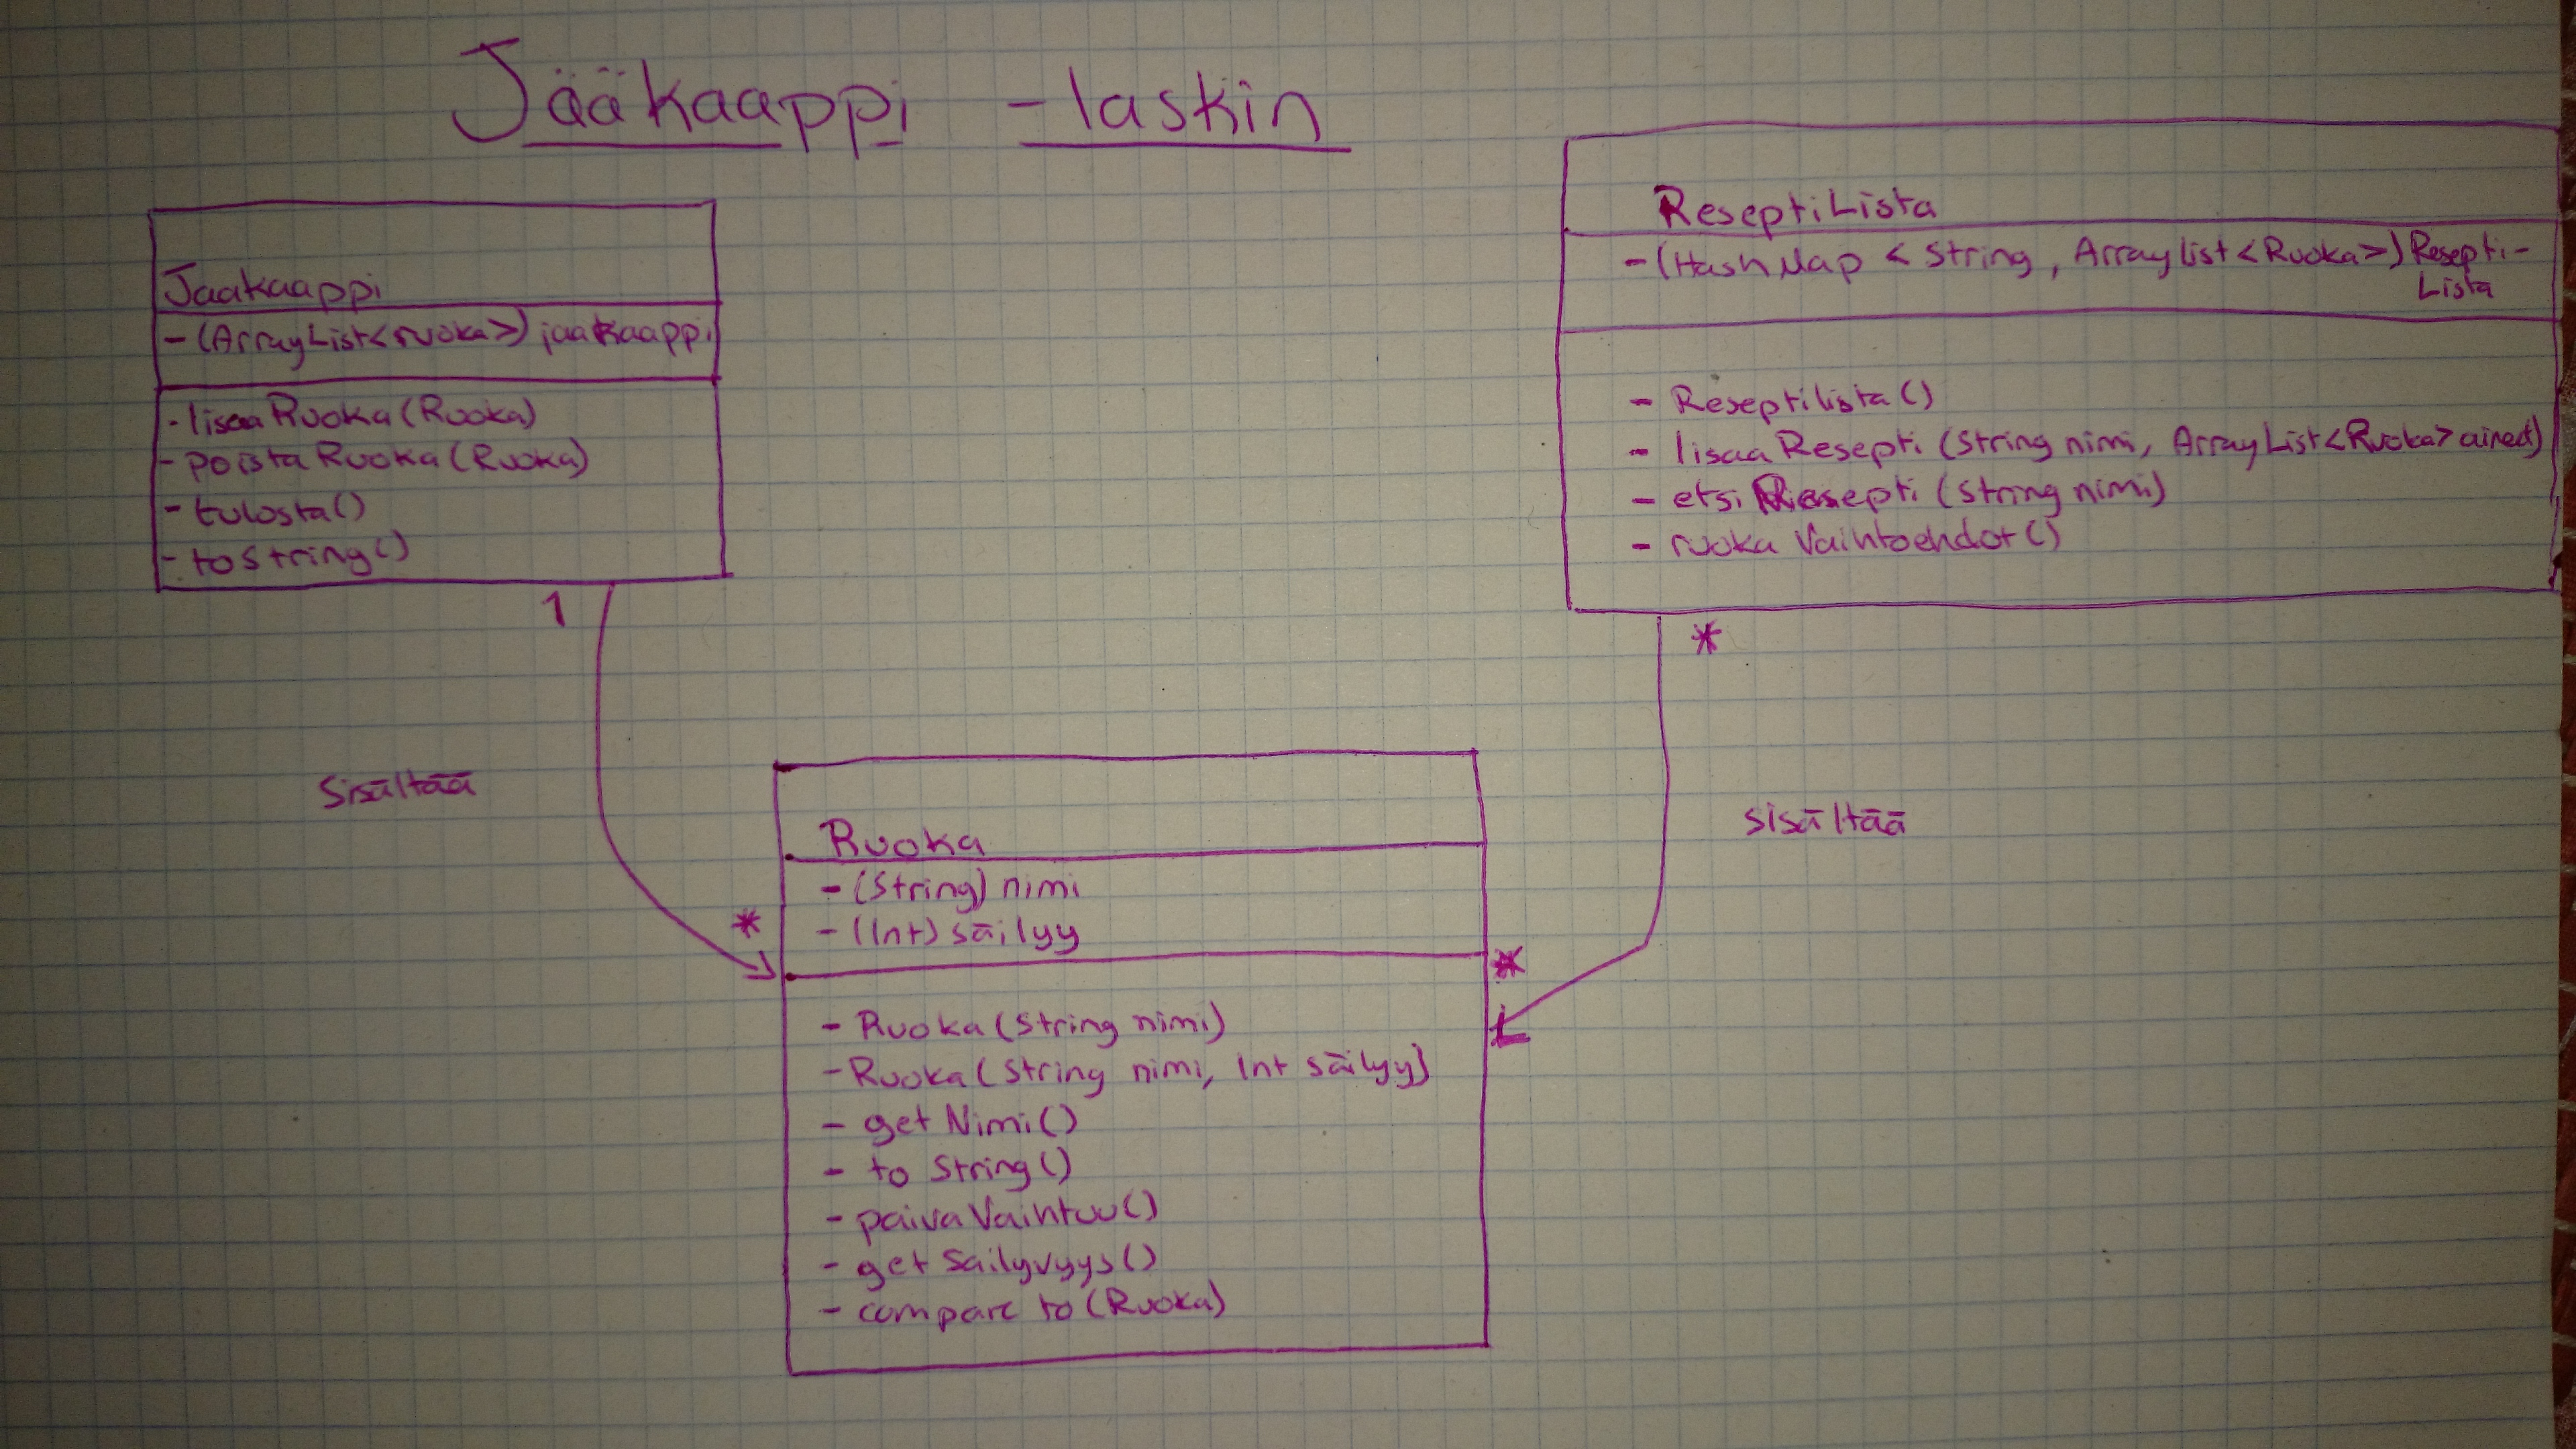 Jääkaappi -laskin
Jaakaappi
- (ArrayList<ruoka>) jaakaappi
- lisaaRuoka(Ruoka)
- poistaRuoka(Ruoka)
- tulosta()
- toString()
1
Sisältää
*
ReseptiLista
- (HashMap <String, ArrayList<Ruoka>) Resepti-
Lista
- Reseptilista()
- lisaaResepti(String nimi, ArrayList<Ruoka> aineet)
- etsiResepti(String nimi)
- ruokaVaihtoehdot()
*
sisältää
*
Ruoka
- (String) nimi
- (Int) säilyy
- Ruoka(String nimi)
- Ruoka(String nimi, Int säilyy)
- getNimi()
- to String()
- paivaVaihtuu()
- getSailyvyys()
- compare to (Ruoka)